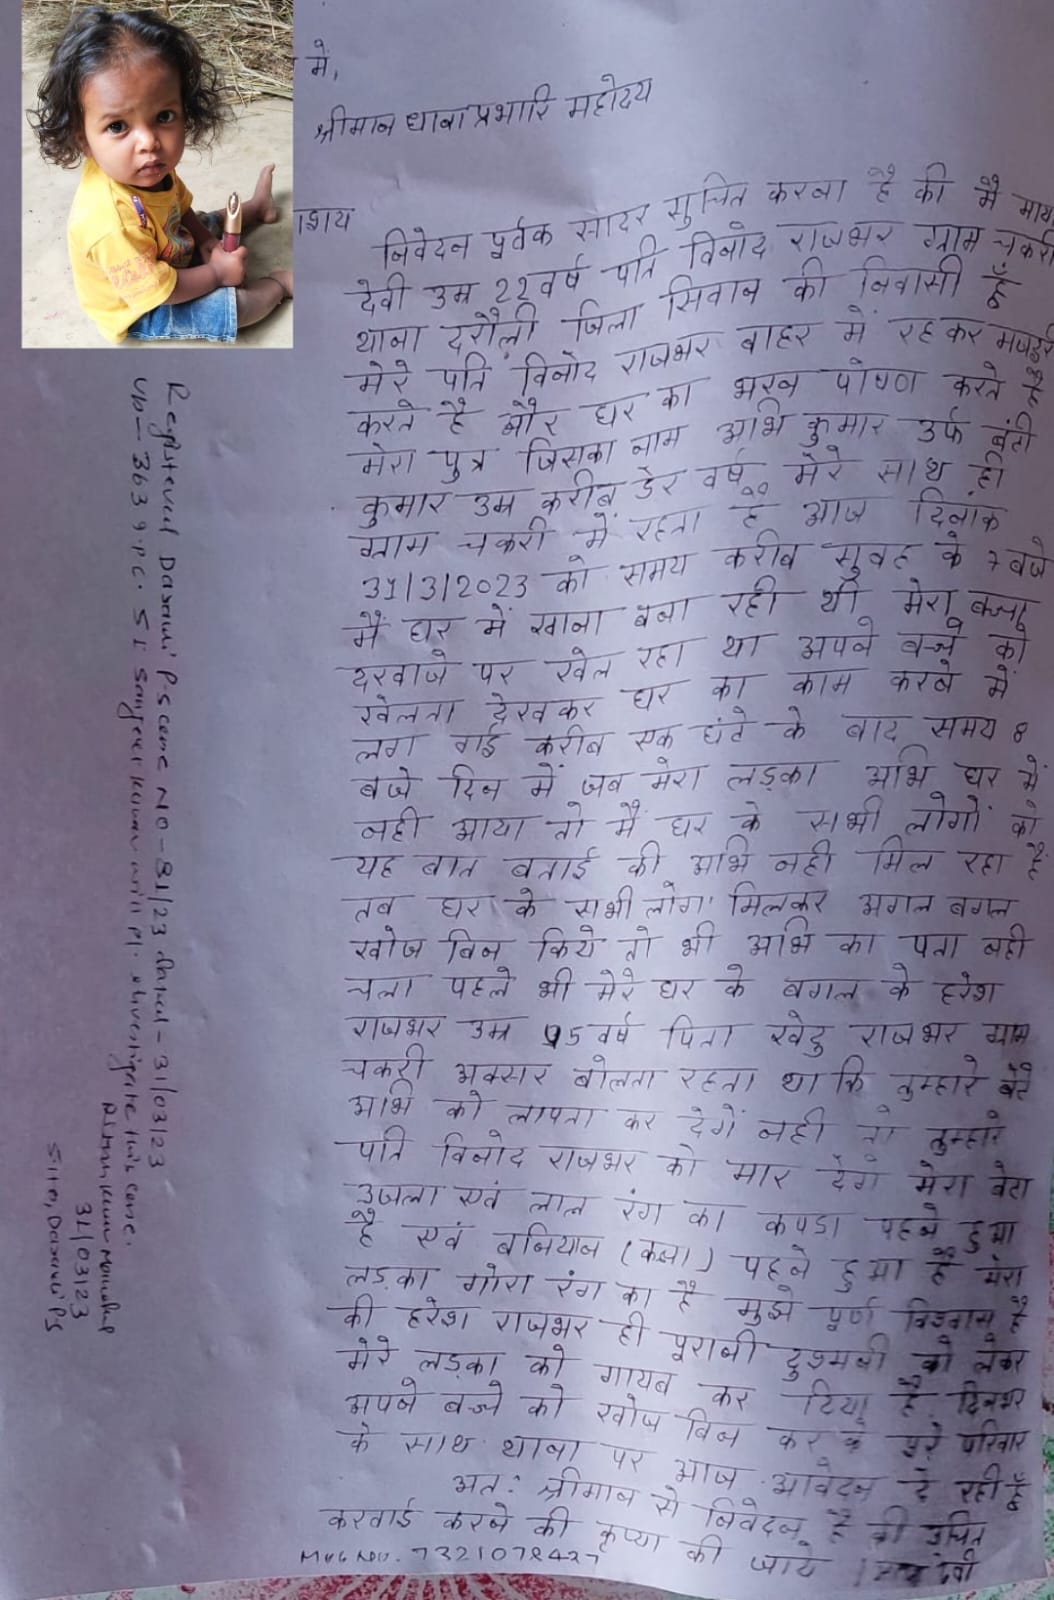 में,
श्रीमान थाना प्रभारि महोदय
शय
निवेदन पूर्वक सादर सुचित करना है की मै माया
देवी उम्र 22 वर्ष पति विनोद राजभर ग्राम चकरी
थाना दरौली जिला सिवान की निवासी हूँ
मेरे पति विनोद राजभर बाहर में रहकर मजदुरी
करते है और घर का भरन पोषण करते है
मेरा पुत्र जिसका नाम अभि कुमार उर्फ बंटी
कुमार उम्र करीब डेर वर्ष मेरे साथ ही
ग्राम चकरी में रहता है आज दिनांक
31/3/2023 को समय करीब सुवह के 7 बजे
मै घर में खाना बना रही थी मेरा बच्चा
दरवाजे पर खेल रहा था अपने बच्चे को
खेलता देखकर घर का काम करने में
लग गई करीब एक घंटे के बाद समय 8
बजे दिन में जब मेरा लड़का अभि घर में
नही आया तो मैं घर के सभी लोगों को
यह बात बताई की अभि नही मिल रहा है
तब घर के सभी लोग मिलकर अगल बगल
खोज बिन किये तो भी अभि का पता नही
चला पहले भी मेरे घर के बगल के हरेश
राजभर उम्र 45 वर्ष पिता खेदु राजभर ग्राम
चकरी अक्सर बोलता रहता था कि तुम्हारे बेटे
अभि को लापता कर देगें नही तो तुम्हारे
पति विनोद राजभर को मार देगें मेरा बेटा
उजला एवं लाल रंग का कपडा पहने हुआ
है एवं बनियान (कला) पहने हुआ है मेरा
लड़का गोरा रंग का है मुझे पूर्ण विश्वास है
की हरेश राजभर ही पूरानी दुश्मनी को लेकर
मेरे लड़का को गायब कर दिया है दिनभर
अपने बच्चे को खोज बिन कर के पुरे परिवार
के साथ थाना पर आज आवेदन दे रही हूँ
अतः श्रीमान से निवेदन है की उचित
करवाई करने की कृप्या की जाये । माया देवी
Mob No. 7321078427
Registered Darauli P.S case No - 81/23 dated - 31/03/23
U/s - 363 I.P.C. S I Sanjeet Kumar will pl. investigate this case.
31/03/23
S.H.O, Darauli P.S